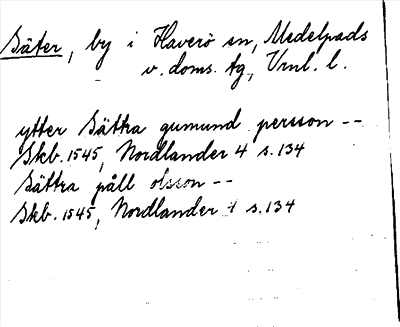 Säter, by i Haverö sn, Medelpads
v. doms. tg, Vrnl. l.
ytter Sättra gumund persson --
Skb. 1545, Nordlander 4 s. 134
Sättra påll olsson --
Skb. 1545, Nordlander 4 s. 134